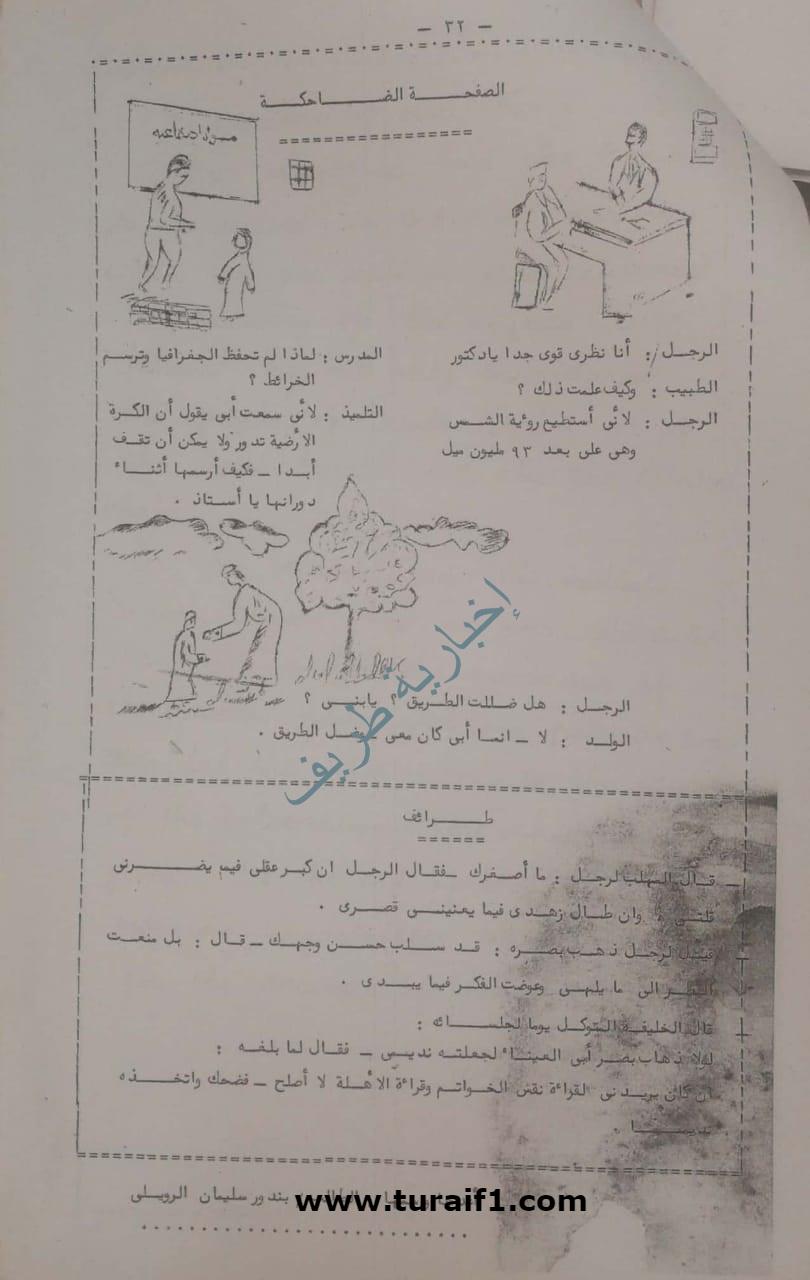 - ٣٢ -
الصفحـــة الضـــاحكـــة
مواد اجتماعيه
الرجـــل : أنا نظرى قوى جدا يادكتور
الطبيب : وكيف علمت ذلك ؟
الرجـل : لأنى أستطيع رؤية الشمس
وهى على بعد ٩٣ مليون ميل
المدرس : لماذا لم تحفظ الجغرافيا وترسم
الخرائط ؟
التلميذ : لأنى سمعت أبى يقول أن الكرة
الأرضية تدور ولا يمكن أن تقف
أبدا ـ فكيف أرسمها أثناء
دورانها يا أستاذ .
الرجـل : هل ضللت الطريق ؟ يابنى ؟
الولـد : لا ـ انما أبى كان معى ـ ضل الطريق .
طـــرائف
ـ قـال المهلب لرجـل : ما أصغرك ـ فقـال الرجـل ان كبر عقلى فيم يضـرنى
وان طـال زهدى فيما يعنينـى قصرى .
لرجـل ذهـب بصـره : قـد سـلب حسـن وجهـك ـ قـال : بل منعـت
الى ما يلهـى وعوضت الفكر فيما يبـدى .
قال الخليفـة المتوكـل يوما لجلسـائه :
لولا ذهاب بصر أبى العينـاء لجعلته نديمـى ـ فقـال لما بلغـه :
ان كان يريدنى لقراءة نقش الخواتـم وقراءة الأهلـة لا أصلح ـ فضحك واتخـذه
نديمـــا .
بندور سليمان الرويـلى
إخبارية طريف
www.turaif1.com